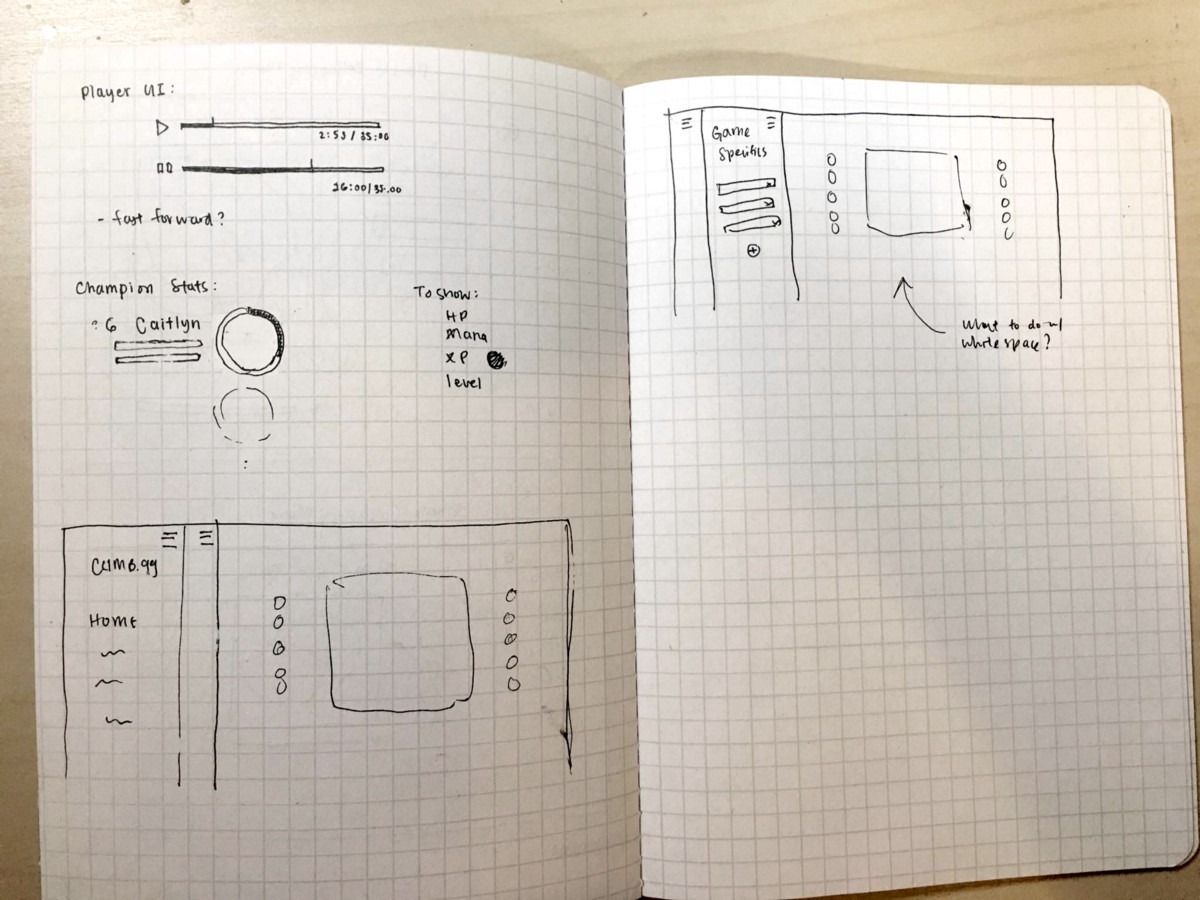 Player UI:
2:53 / 35:00
26:00/35:00
- fast forward?
Champion Stats:
6 Caitlyn
To show:
HP
Mana
XP
level
Home
Game
Specifics
What to do w/
white space?